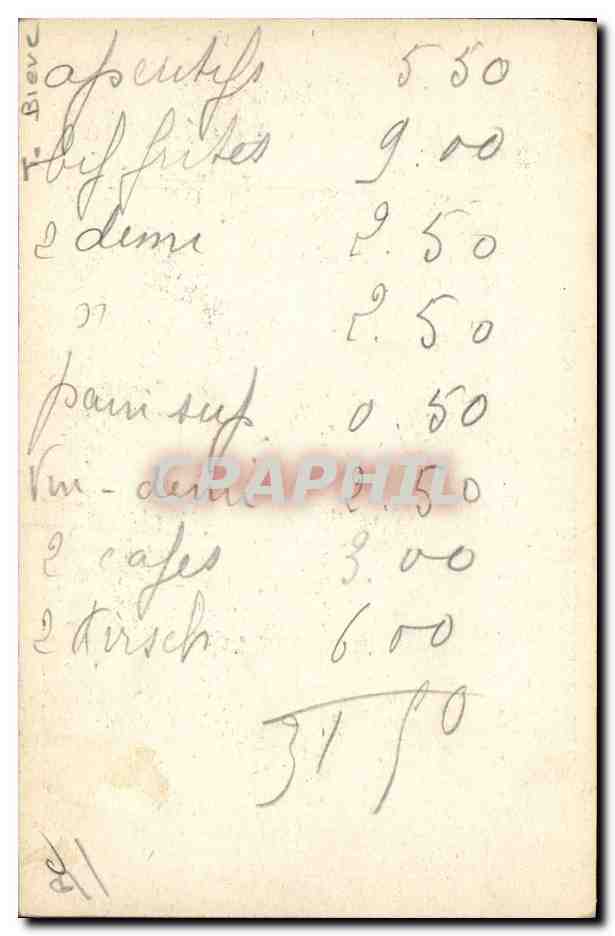 aperitifs 5.50
bif frites 9.00
2 demi 2.50
" 2.50
pain sup. 0.50
Vin - demi 2.50
2 cafes 3.00
2 Kirsch. 6.00
31 50
T. Bieve
CPAPHIL